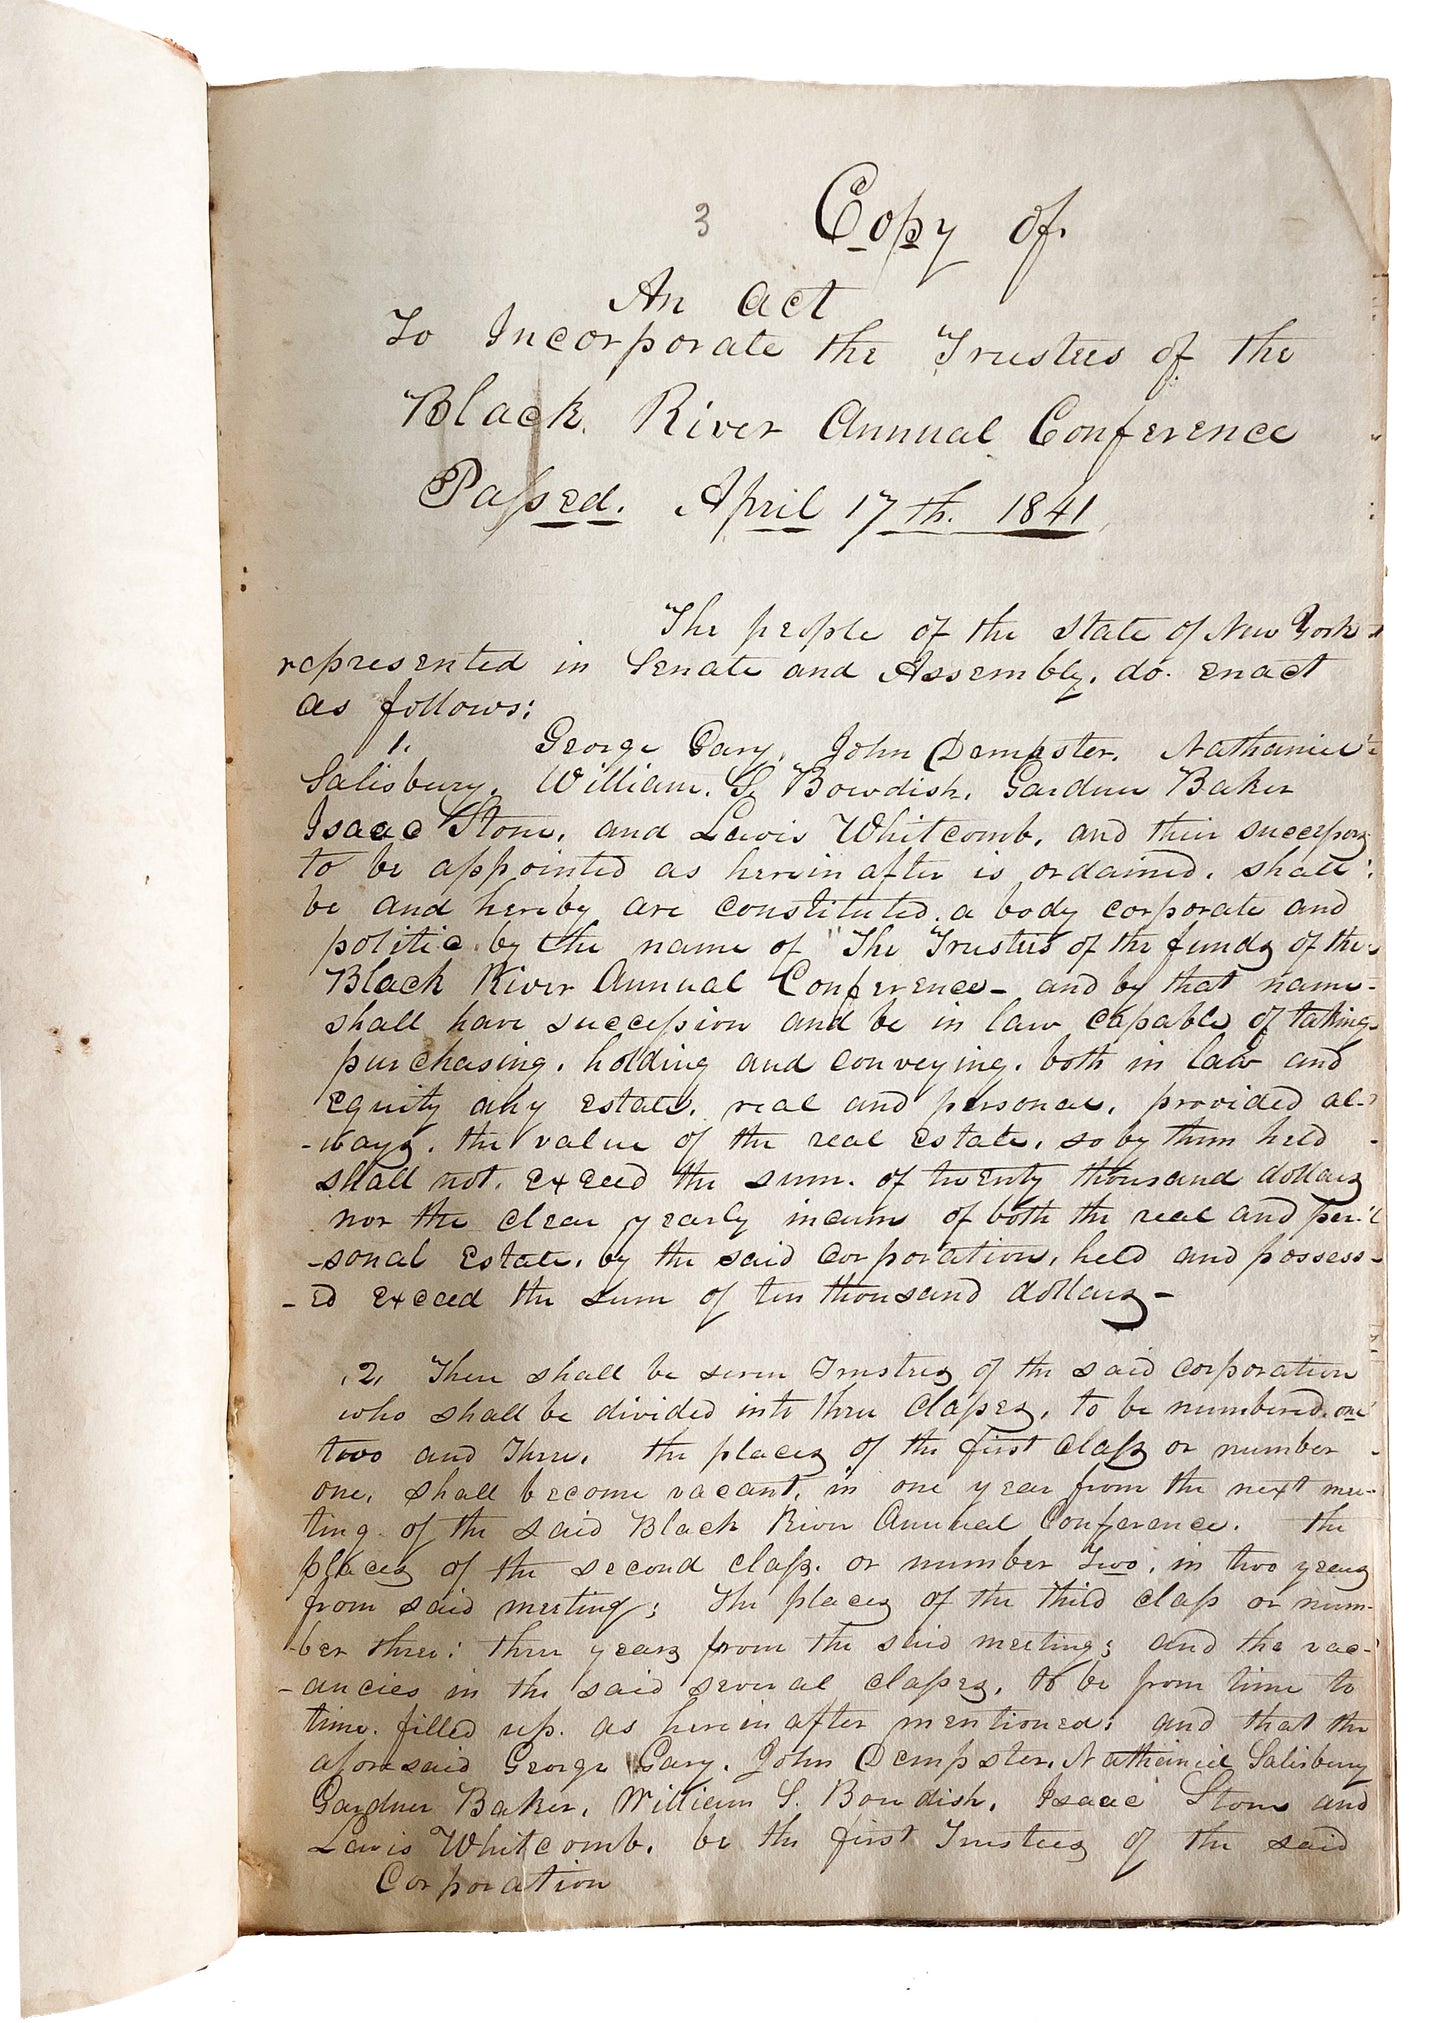 3 Copy of.
An act
To Incorporate the Trustees of the
Black River Annual Conference
Passed. April 17th. 1841
The people of the state of New York
represented in Senate and Assembly. do. enact
as follows:
1. George Gary. John Dempster. Nathaniel
Salisbury. William. S. Bowdish. Gardner Baker
Isaac Stone, and Lewis Whitcomb, and their successors
to be appointed as herein after is ordained. shall
be and hereby are constituted. a body corporate and
politic. by the name of "The Trustees of the funds of the
Black River Annual Conference- and by that name-
shall have succession and be in law capable of taking
purchasing. holding and conveying. both in law and
equity any estate. real and personal. provided al-
-ways. the value of the real estate. so by them held
shall not. exceed the sum. of twenty thousand dollars
nor the clear yearly income of both the real and per-
-sonal Estate. by the said Corporation, held and possess-
-ed exceed the sum of ten thousand dollars-
2. There shall be seven Trustees of the said corporation
who shall be divided into three Classes, to be numbered. one
two and Three. the places of the first Class or number
one, shall become vacant, in one year from the next mee-
ting. of the said Black River Annual Conference. the
places of the second class. or number Two. in two years
from said meeting; The places of the third class or num-
-ber three: three years from the said meeting; and the vac-
-ancies in the said several classes, to be from time to
time. filled up. as herein after mentioned; and that the
aforesaid George Gary. John Dempster. Nathaniel Salisbury
Gardner Baker, William S. Bowdish, Isaac Stone and
Lewis Whitcomb. be the first Trustees of the said
Corporation